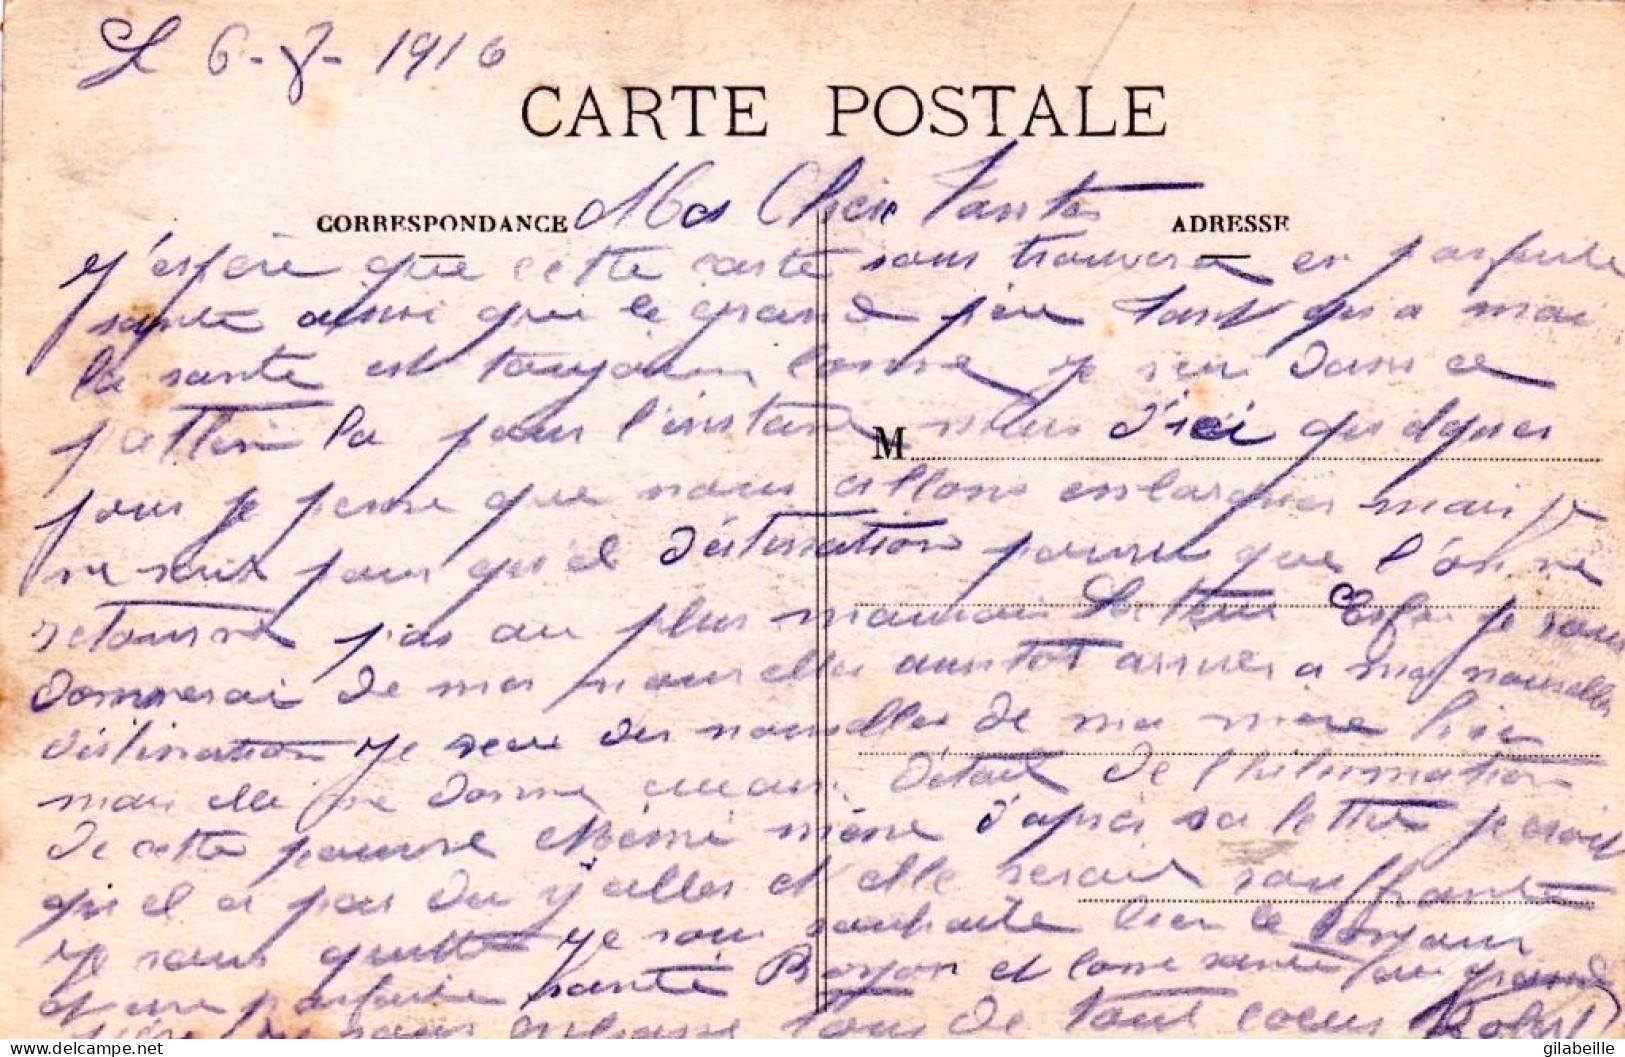 Le 6-7-1916
CARTE POSTALE
CORRESPONDANCE Ma Cheie Tante ADRESSE
J'espère que cette carte vous trouvera en parfaite
sante aussi que le grand père tant qu'a moi
la sante est toujours bonne je suis dans ce
pattlin la pour l'instant mais d'ici quelques
M
jours je pense que nous allons enbarquer mais je
ne sais pour qu'el déstination pourvu que l'on ne
retourne pas au plus mauvais secteur Enfin je vous
donnerai de mes nouvelles aussitot arriver a ma nouvelles
déstination je recu des nouvelles de ma mère hier
mais elle ne donne aucun détail de l'hihumation
de cette pauvre Mémé même d'apres sa lettre je crois
qu'el a pas du y aller et elle serait souffrante
je vous quitte je vous souhaite bien le bonjour
et une parfaite santé Bonjour et bonne sante au grand
père je vous enbrasse tous de tout coeur Robert
delcampe.net
gilabeille